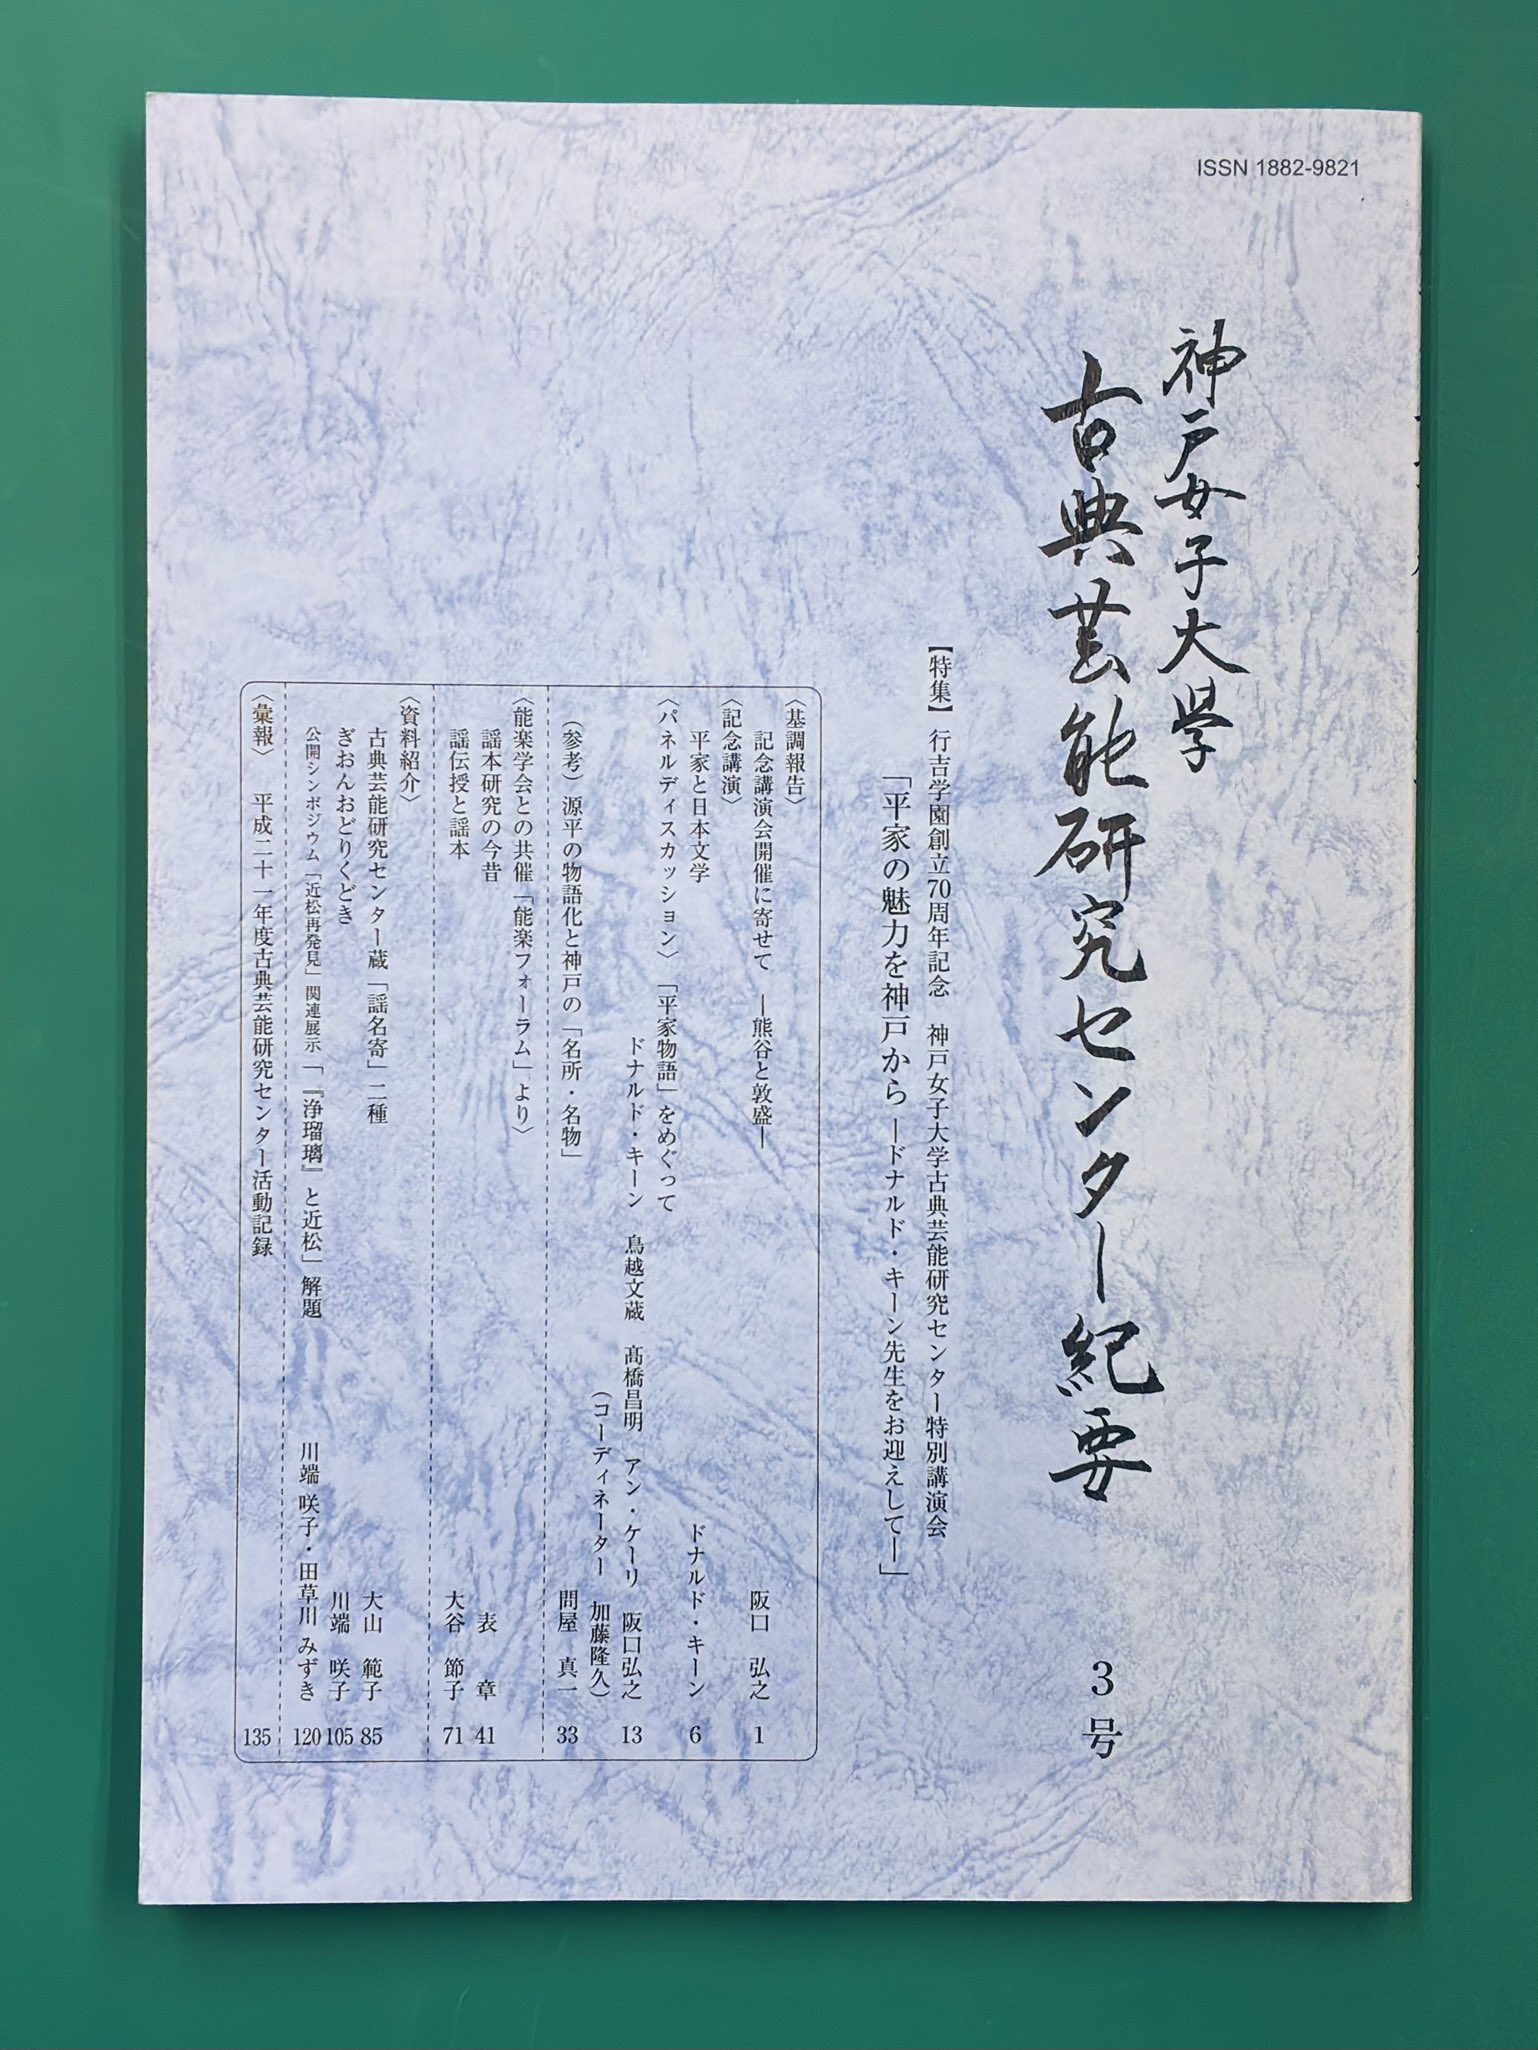 ISSN 1882-9821
神戸女子大學
古典芸能研究センター紀要
3号
【特集】 行吉学園創立70周年記念 神戸女子大学古典芸能研究センター特別講演会
「平家の魅力を神戸から ―ドナルド・キーン先生をお迎えして―」
〈基調報告〉
記念講演会開催に寄せて ―熊谷と敦盛― 阪口 弘之 1
〈記念講演〉
平家と日本文学 ドナルド・キーン 6
〈パネルディスカッション〉 「平家物語」をめぐって
ドナルド・キーン 鳥越文蔵 髙橋昌明 アン・ケーリ 阪口弘之 13
（コーディネーター 加藤隆久）
（参考）源平の物語化と神戸の「名所・名物」 問屋 真一 33
〈能楽学会との共催「能楽フォーラム」より〉
謡本研究の今昔 表 章 41
謡伝授と謡本 大谷 節子 71
〈資料紹介〉
古典芸能研究センター蔵「謡名寄」二種 大山 範子 85
ぎおんおどりくどき 川端 咲子 105
公開シンポジウム「近松再発見」関連展示「『浄瑠璃』と近松」解題 川端 咲子・田草川 みずき 120
〈彙報〉 平成二十一年度古典芸能研究センター活動記録 135